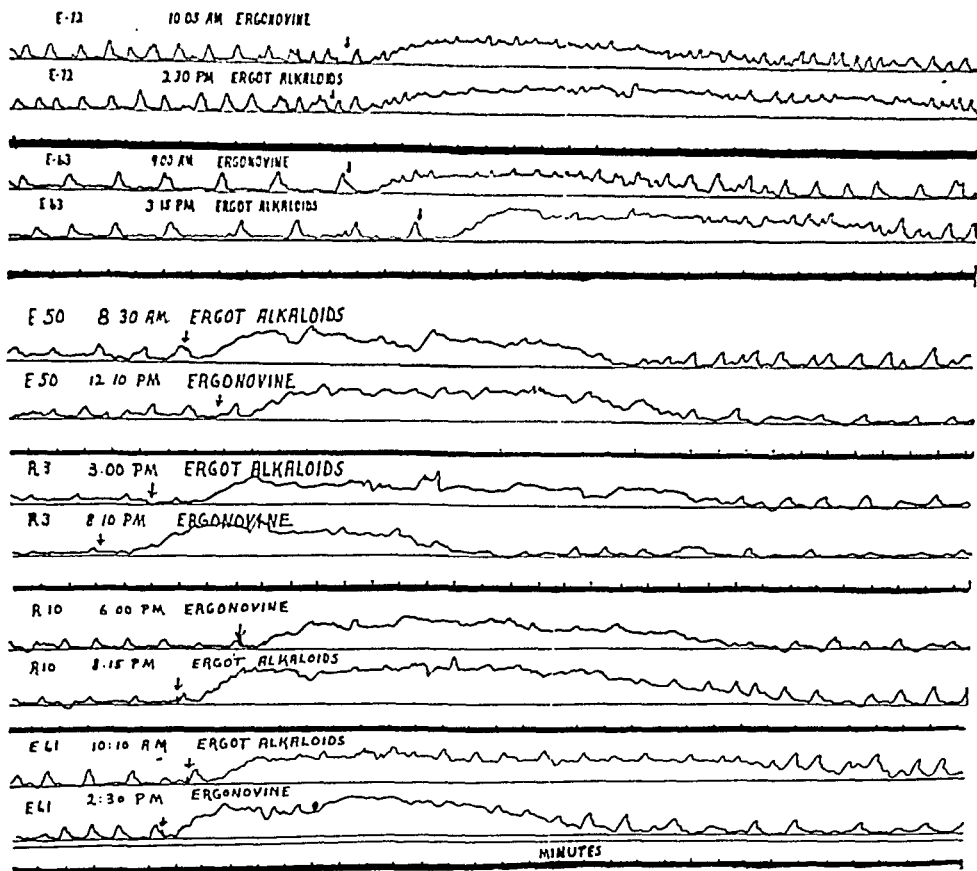 E-72 10 05 AM ERGONOVINE
E-72 2 30 PM ERGOT ALKALOIDS
E-63 9 00 AM ERGONOVINE
E 63 3 15 PM ERGOT ALKALOIDS
E 50 8 30 AM ERGOT ALKALOIDS
E 50 12 10 PM ERGONOVINE
R 3 3.00 PM ERGOT ALKALOIDS
R3 8 10 PM ERGONOVINE
R 10 6 00 PM ERGONOVINE
R10 8.15 PM ERGOT ALKALOIDS
E 61 10:10 AM ERGOT ALKALOIDS
E61 2:30 PM ERGONOVINE
MINUTES